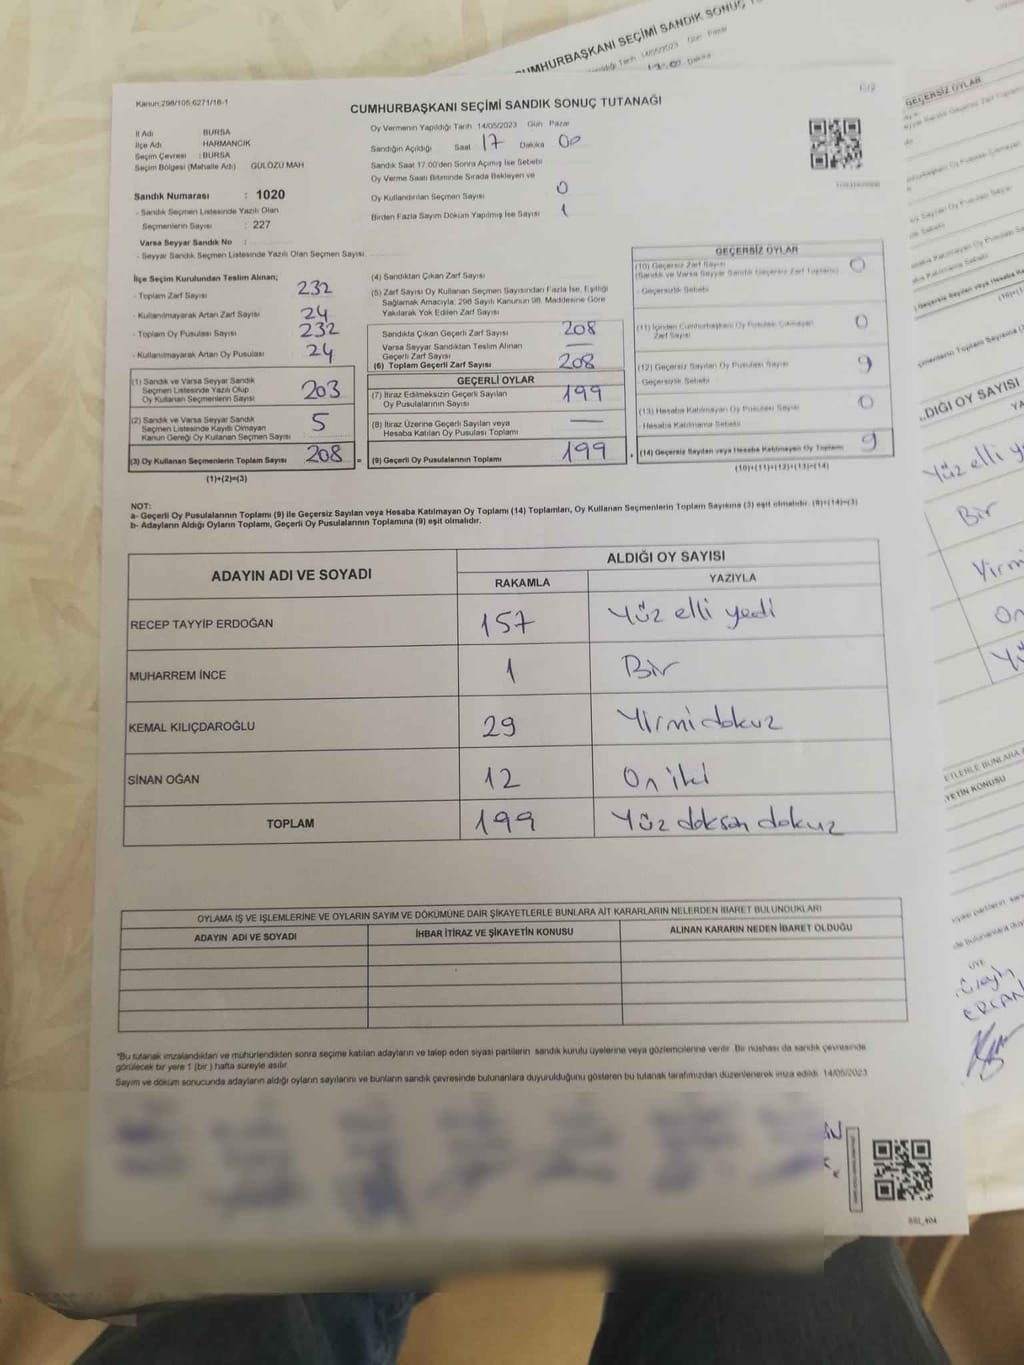 CUMHURBAŞKANI SEÇİMİ SANDIK SONUÇ
Kanun:298/105,6271/16-1
CUMHURBAŞKANI SEÇİMİ SANDIK SONUÇ TUTANAĞI
İl Adı BURSA
İlçe Adı HARMANCIK
Seçim Çevresi : BURSA
Seçim Bölgesi (Mahalle Adı) GÜLÖZÜ MAH
Oy Vermenin Yapıldığı Tarih 14/05/2023 Gün Pazar
Sandığın Açıldığı Saat 17 Dakika 00
Sandık Saat 17:00'den Sonra Açımış İse Sebebi
Oy Verme Saati Bitiminde Sırada Bekleyen ve
Oy Kullandırılan Seçmen Sayısı 0
Birden Fazla Sayım Döküm Yapılmış İse Sayısı 1
Sandık Numarası : 1020
- Sandık Seçmen Listesinde Yazılı Olan
Seçmenlerin Sayısı : 227
Varsa Seyyar Sandık No :
- Seyyar Sandık Seçmen Listesinde Yazılı Olan Seçmen Sayısı
İlçe Seçim Kurulundan Teslim Alınan;
- Toplam Zarf Sayısı 232
- Kullanılmayarak Artan Zarf Sayısı 24
- Toplam Oy Pusulası Sayısı 232
- Kullanılmayarak Artan Oy Pusulası 24
(1) Sandık ve Varsa Seyyar Sandık
Seçmen Listesinde Yazılı Olup
Oy Kullanan Seçmenlerin Sayısı 203
(2) Sandık ve Varsa Seyyar Sandık
Seçmen Listesinde Kayıtlı Olmayan
Kanun Gereği Oy Kullanan Seçmen Sayısı 5
(3) Oy Kullanan Seçmenlerin Toplam Sayısı 208 =
(1)+(2)=(3)
(4) Sandıktan Çıkan Zarf Sayısı
(5) Zarf Sayısı Oy Kullanan Seçmen Sayısından Fazla İse, Eşitliği
Sağlamak Amacıyla; 298 Sayılı Kanunun 98. Maddesine Göre
Yakılarak Yok Edilen Zarf Sayısı
Sandıkta Çıkan Geçerli Zarf Sayısı 208
Varsa Seyyar Sandıktan Teslim Alınan
Geçerli Zarf Sayısı —
(6) Toplam Geçerli Zarf Sayısı 208
GEÇERLİ OYLAR
(7) İtiraz Edilmeksizin Geçerli Sayılan
Oy Pusulalarının Sayısı 199
(8) İtiraz Üzerine Geçerli Sayılan veya
Hesaba Katılan Oy Pusulası Toplamı —
(9) Geçerli Oy Pusulalarının Toplamı 199
GEÇERSİZ OYLAR
(10) Geçersiz Zarf Sayısı 0
(Sandık ve Varsa Seyyar Sandık Geçersiz Zarf Toplamı)
- Geçersizlik Sebebi
(11) İçinden Cumhurbaşkanı Oy Pusulası Çıkmayan
Zarf Sayısı 0
(12) Geçersiz Sayılan Oy Pusulası Sayısı 9
- Geçersizlik Sebebi
(13) Hesaba Katılmayan Oy Pusulası Sayısı 0
- Hesaba Katılmama Sebebi
(14) Geçersiz Sayılan veya Hesaba Katılmayan Oy Toplamı 9
(10)+(11)+(12)+(13)=(14)
NOT:
a- Geçerli Oy Pusulalarının Toplamı (9) ile Geçersiz Sayılan veya Hesaba Katılmayan Oy Toplamı (14) Toplamları, Oy Kullanan Seçmenlerin Toplam Sayısına (3) eşit olmalıdır. (9)+(14)=(3)
b- Adayların Aldığı Oyların Toplamı, Geçerli Oy Pusulalarının Toplamına (9) eşit olmalıdır.
ADAYIN ADI VE SOYADI
ALDIĞI OY SAYISI
RAKAMLA YAZIYLA
RECEP TAYYİP ERDOĞAN 157 Yüz elli yedi
MUHARREM İNCE 1 Bir
KEMAL KILIÇDAROĞLU 29 Yirmi dokuz
SİNAN OĞAN 12 On iki
TOPLAM 199 Yüz doksan dokuz
OYLAMA İŞ VE İŞLEMLERİNE VE OYLARIN SAYIM VE DÖKÜMÜNE DAİR ŞİKAYETLERLE BUNLARA AİT KARARLARIN NELERDEN İBARET BULUNDUKLARI
ADAYIN ADI VE SOYADI İHBAR İTİRAZ VE ŞİKAYETİN KONUSU ALINAN KARARIN NEDEN İBARET OLDUĞU
*Bu tutanak imzalandıktan ve mühürlendikten sonra seçime katılan adayların ve talep eden siyasi partilerin sandık kurulu üyelerine veya gözlemcilerine verilir. Bir nüshası da sandık çevresinde
görülecek bir yere 1 (bir ) hafta süreyle asılır.
Sayım ve döküm sonucunda adayların aldığı oyların sayılarını ve bunların sandık çevresinde bulunanlara duyurulduğunu gösteren bu tutanak tarafımızdan düzenlenerek imza edildi. 14/05/2023
GEÇERSİZ OYLAR
DIĞI OY SAYISI
Yüz elli
Bir
Yirmi
On
ÜYE
ERCAN